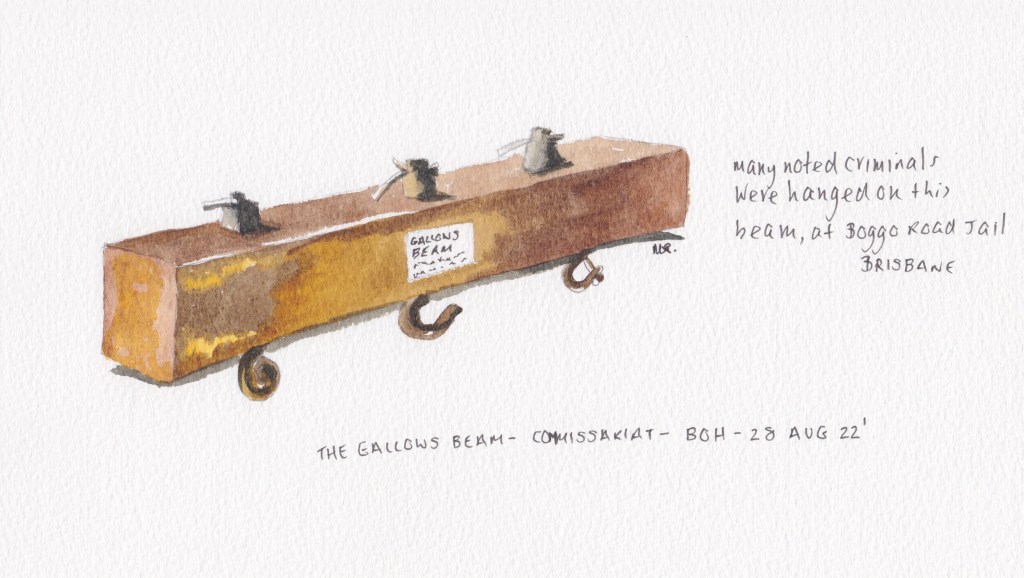 GALLOWS
BEAM
many noted criminals
were hanged on this
beam, at Boggo Road Jail
BRISBANE
THE GALLOWS BEAM - COMISSARIAT - BOH - 28 AUG 22'